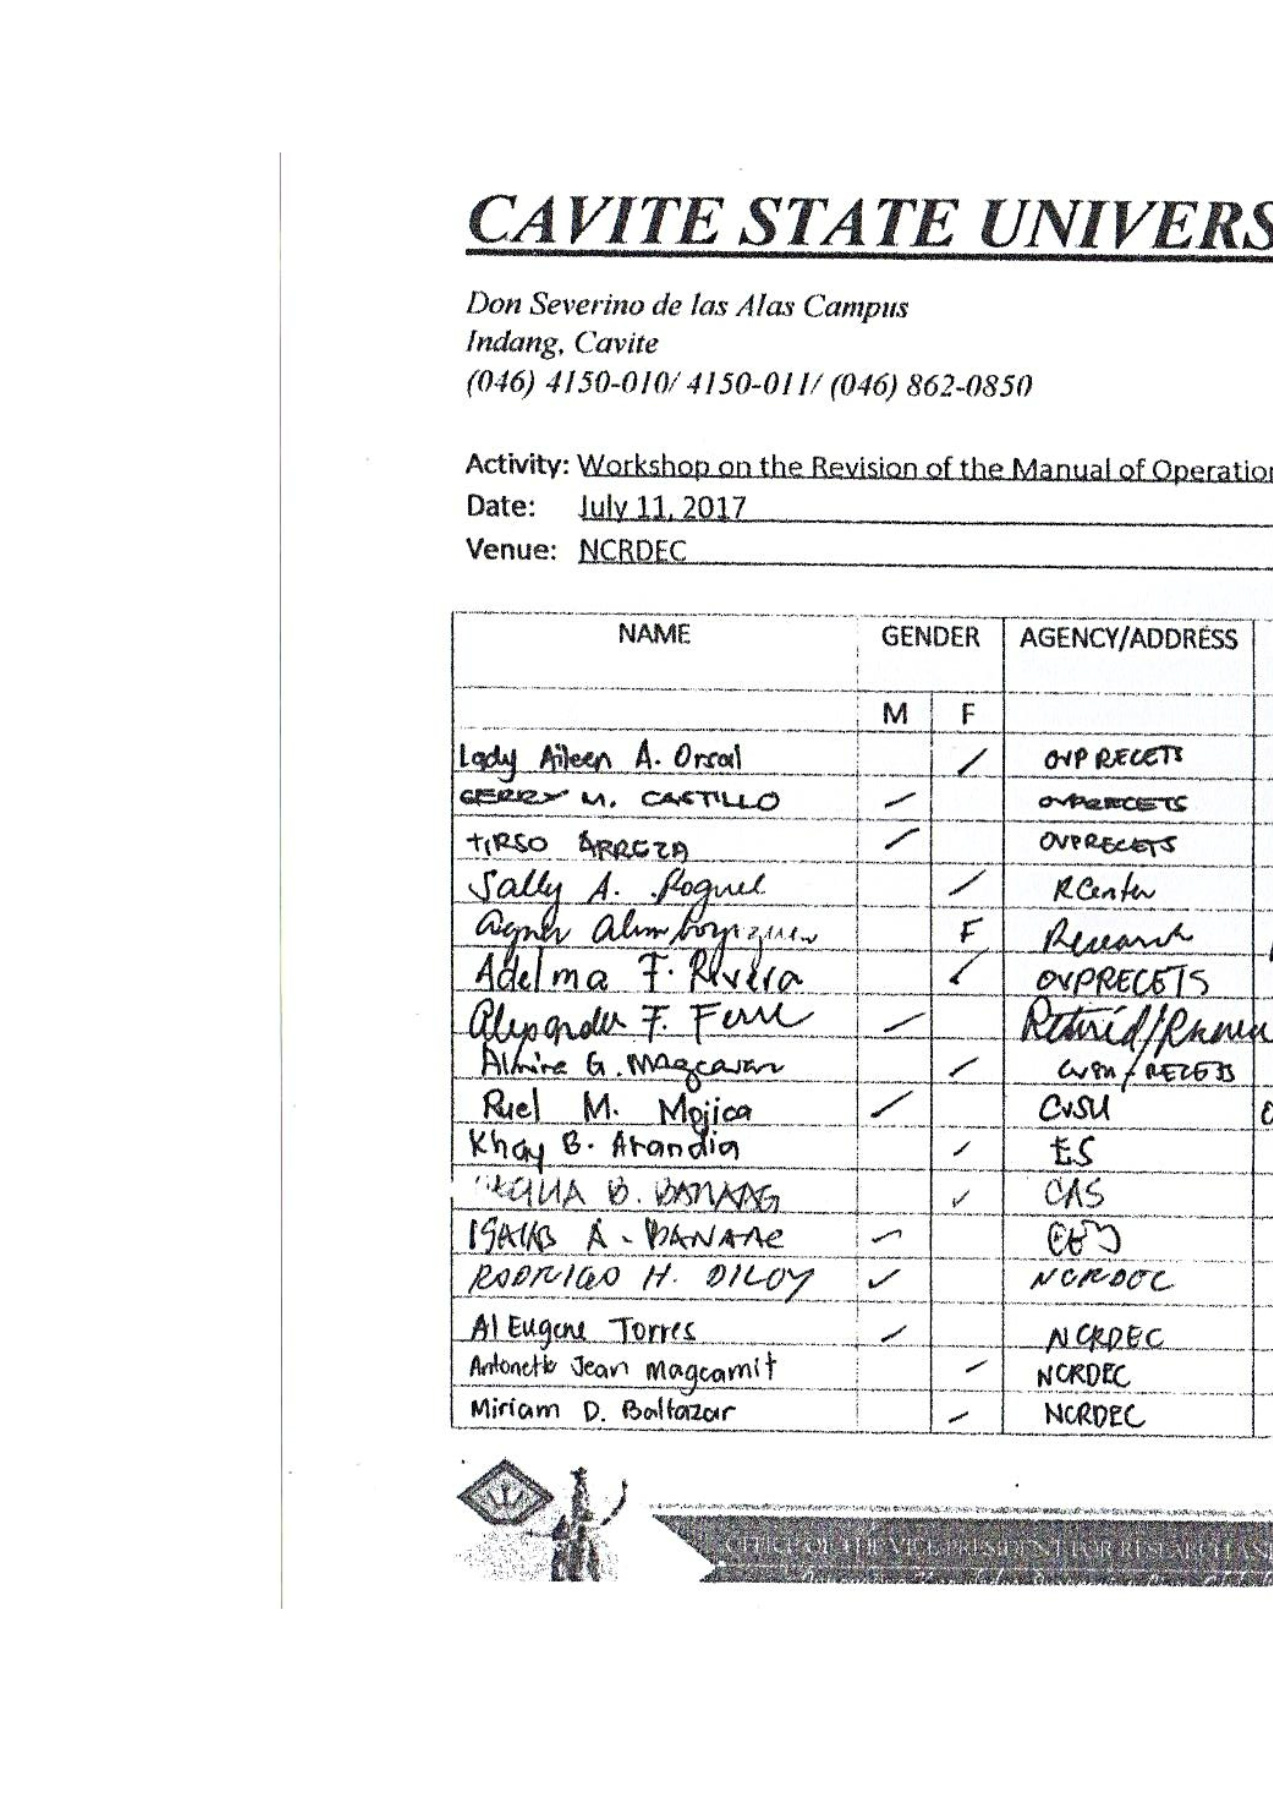 CAVITE STATE UNIVERS
Don Severino de las Alas Campus
Indang, Cavite
(046) 4150-010/ 4150-011/ (046) 862-0850
Activity: Workshop on the Revision of the Manual of Operation
Date: July 11, 2017
Venue: NCRDEC
NAME GENDER AGENCY/ADDRESS
M F
Lady Aileen A. Orsal OVPRECETS
GERRY M. CASTILLO OVPRECETS
TIRSO ARREZA OVPRECETS
Sally A. RCenter
F Research
Adelma F. Rivera OVPRECETS
F. Retired/
G. Magcawas
Ruel M. Mojica CvSU
Khay B. Arandia ES
B. BANAAG CAS
A. BANAAG
RODRIGO H. DILOY NCRDEC
Al Eugene Torres NCRDEC
Antonette Jean Magcamit NCRDEC
Miriam D. Baltazar NCRDEC
OFFICE OF THE VICE PRESIDENT FOR RESEARCH